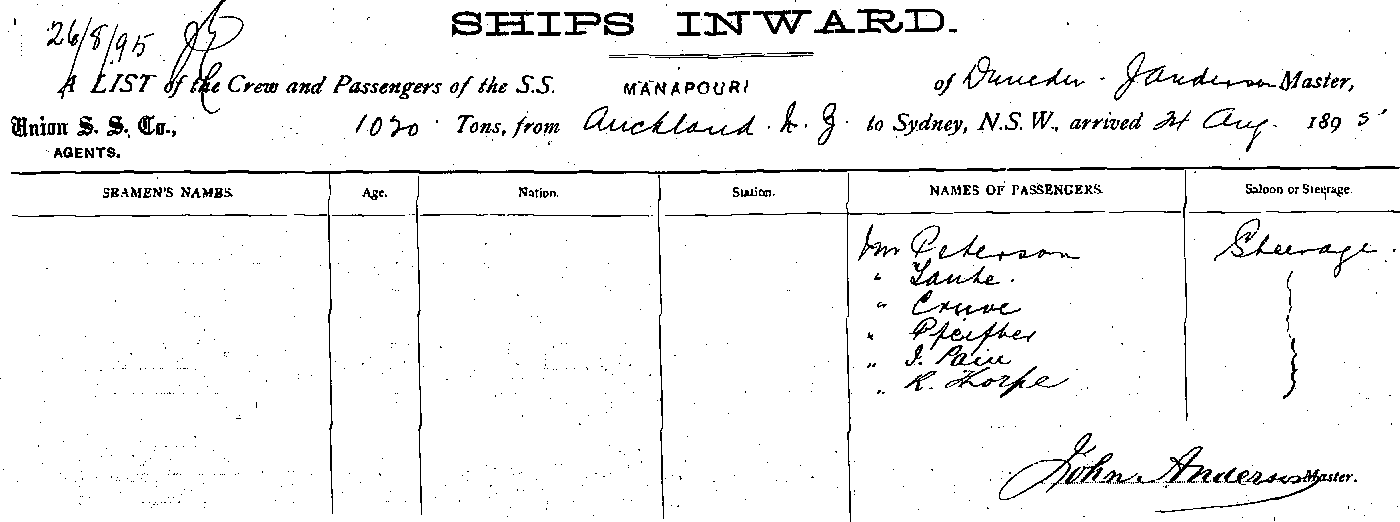 SHIPS INWARD.
26/8/95
A LIST of the Crew and Passengers of the S.S. MANAPOURI of Dunedin. J Anderson Master,
Union S. S. Co., 1020 Tons, from Auckland. N. Z. to Sydney, N.S.W., arrived 24 Aug. 1895
AGENTS.
SEAMEN'S NAMES. Age. Nation. Station. NAMES OF PASSENGERS. Saloon or Steerage.
Mr Peterson Steerage.
" 
" Cruve
" Pfeiffer
" J. Pain
" R. Thorpe
John Anderson Master.